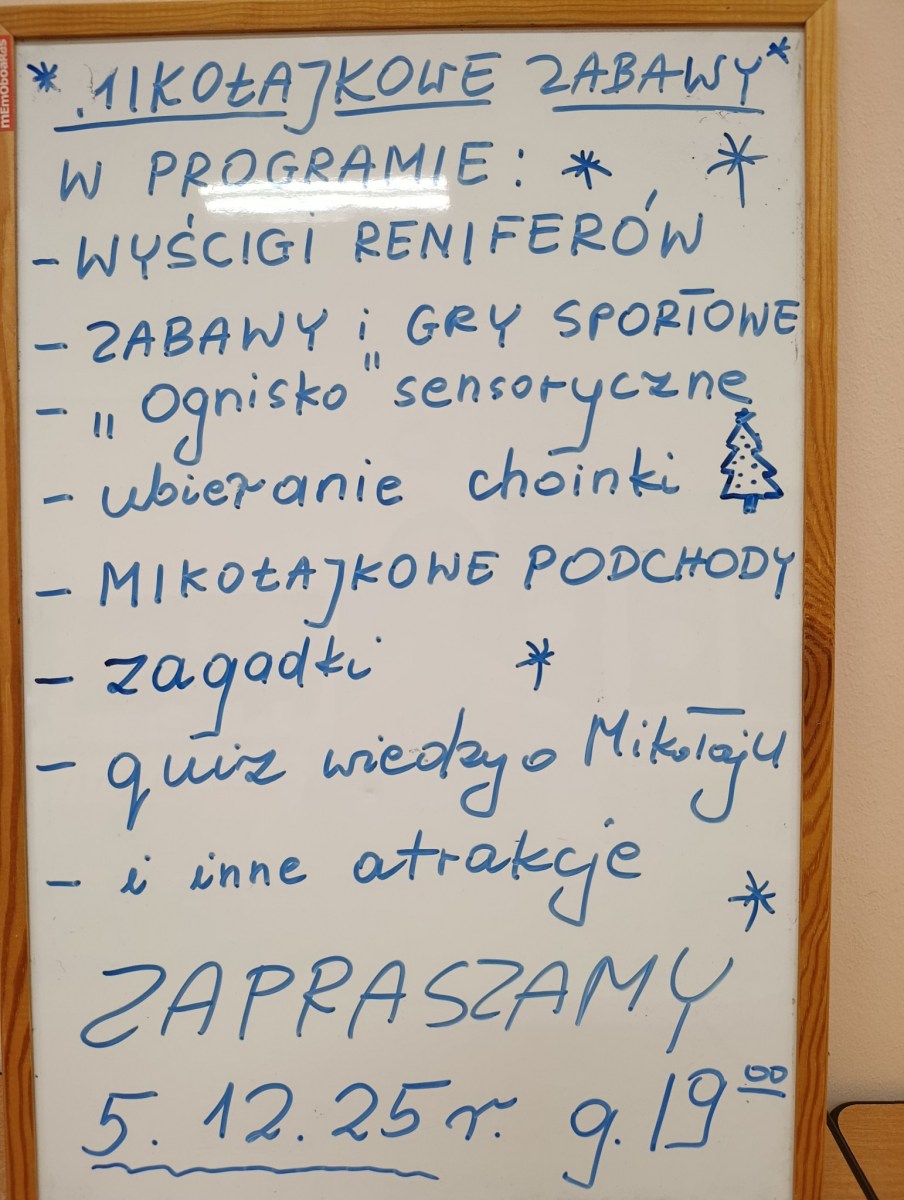 MIKOŁAJKOWE ZABAWY
W PROGRAMIE:
- WYŚCIGI RENIFERÓW
- ZABAWY i GRY SPORTOWE
- „Ognisko" sensoryczne
- ubieranie choinki
- MIKOŁAJKOWE PODCHODY
- zagadki
- quiz wiedzy o Mikołaju
- i inne atrakcje
ZAPRASZAMY
5. 12. 25 r. g. 19 00
memoboards